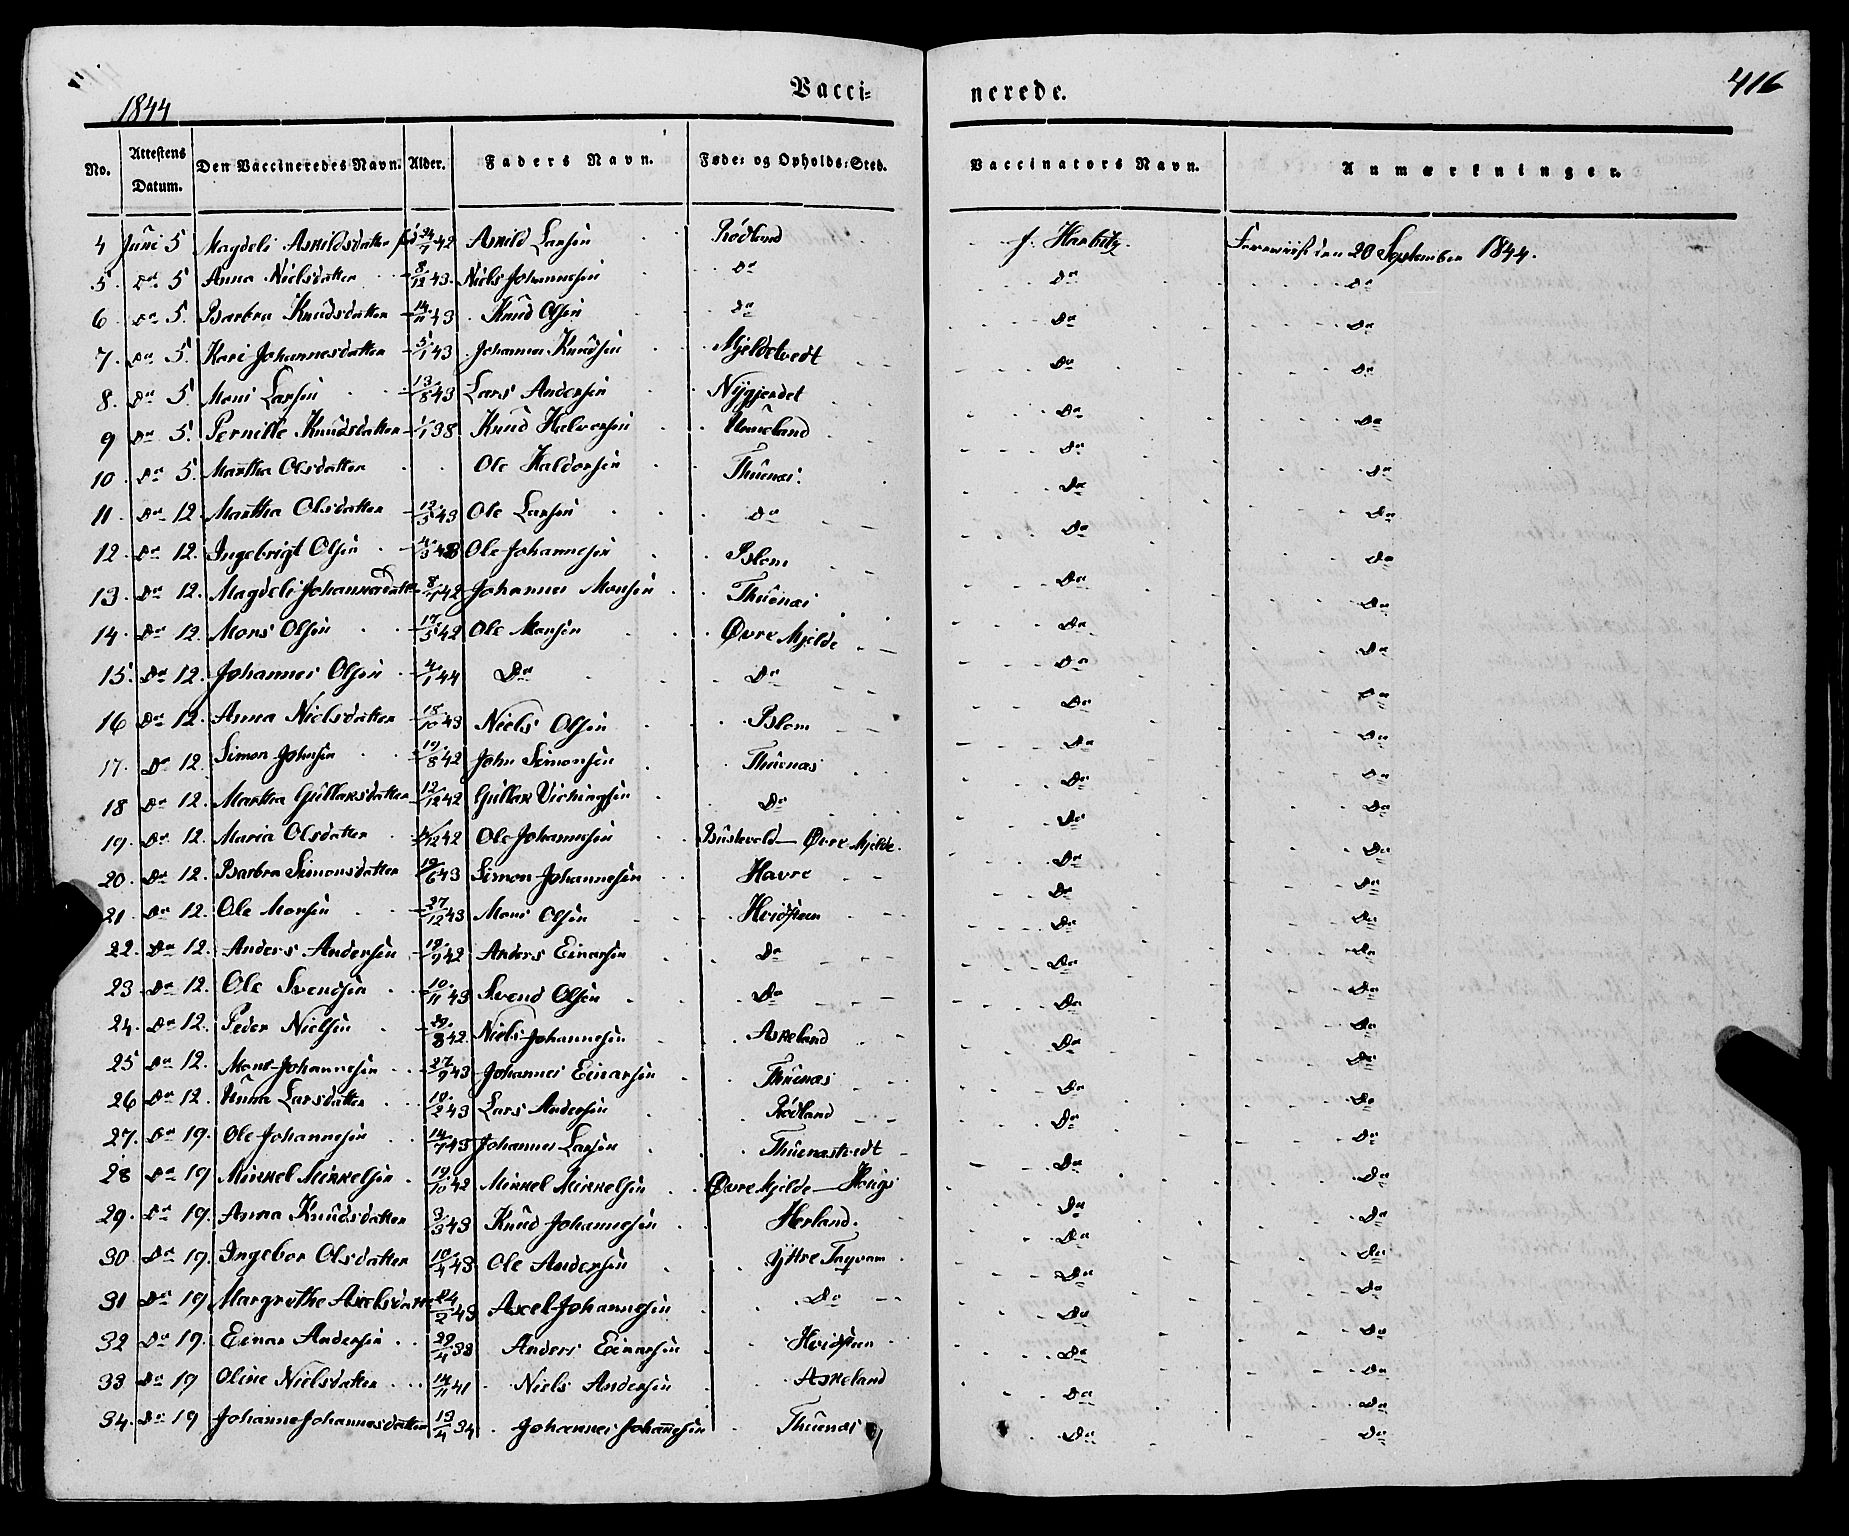 1844 Vacci= nerede. 416
No. Attestens Datum. Den Vaccineredes Navn. Alder. Faders Navn. Føde= og Opholds=Sted. Vaccinators Navn. Anmærkninger.
4 Juni 5 Magdeli Askildsdatter 24/7 42 Askild Larsen Rödland J. Harbitz. Foreviist den 20 September 1844.
5. Do 5 Anna Nielsdatter 8/12 43. Niels Johannesen Do Do Do
6 Do 5. Barbra Knudsdatter 14/11 43 Knud Olsen Do Do Do
7. Do 5. Kari Johannesdatter 5/1 43 Johannes Knudsen Mjeldetvedt Do Do
8. Do 5. Mons Larsen 13/8 43 Lars Andersen Nÿgjerdet Do Do
9 Do 5. Pernille Knudsdatter 1/1 38 Knud Halvorsen Uneland Do Do
10 Do 5. Martha Olsdatter Ole Haldorsen Thuenæs. Do Do
11. Do 12 Martha Olsdatter 12/5 43 Ole Larsen Do Do Do
12. Do 12. Ingebrigt Olsen 4/3 43 Ole Johannesen Blom Do Do
13. Do 12. Magdeli Johannesdatter 8/1 42 Johannes Monsen Thuenæs Do Do
14. Do 12. Mons Olsen 17/5 42 Ole Monsen Øvre Mjelde Do Do
15. Do 12. Johannes Olsen 4/1 44 Do Do Do Do
16 Do 12. Anna Nielsdatter 18/10 43 Niels Olsen Blom Do Do
17. Do 12. Simon Johnsen 19/8 42 John Simonsen Thuenæs Do Do
18 Do 12. Martha Gullaksdatter 12/12 42 Gullak Vichingsen Do Do Do
19. Do 12. Maria Olsdatter /12 42 Ole Johannesen Bustevold — Øvre Mjelde. Do Do
20. Do 12. Barbra Simonsdatter 19/6 43 Simon Johannesen Havre Do Do
21. Do 12. Ole Monsen 27/12 43 Mons Olsen Hvidsteen Do Do
22. Do 12. Anders Andersen 12/9 42 Anders Einarsen Do Do Do
23 Do 12. Ole Svendsen 10/11 43 Svend Olsen Do Do Do
24. Do 12. Peder Nielsen /8 42. Niels Johannesen Askeland Do Do
25 Do 12. Mons Johannesen 27/9 43 Johannes Einarsen Thuenæs Do Do
26 Do 12. Anna Larsdatter 10/2 43 Lars Andersen Rödland Do Do
27. Do 19. Ole Johannesen 14/7 43 Johannes Larsen Thuenæstvedt Do Do
28 Do 19 Mikkel Mikkelsen 19/10 42 Mikkel Mikkelsen Øvre Mjelde — Houge Do Do
29. Do 19. Anna Knudsdatter 3/3 43 Knud Johannesen Herland. Do Do
30 Do 19. Ingebor Olsdatter 10/4 43 Ole Andersen Yttre Taqvam Do Do
31 Do 19 Margrethe Axelsdatter 24/2 43 Axel Johannesen Do Do Do
32 Do 19. Einar Andersen 29/4 38 Anders Einarsen Hvidsteen Do Do
33 Do 19 Oline Nielsdatter 14/11 41 Niels Andersen Askeland Do Do
34. Do 19 Johanna Johannesdatter 13/4 34 Johannes Johannesen Thuenæs Do Do